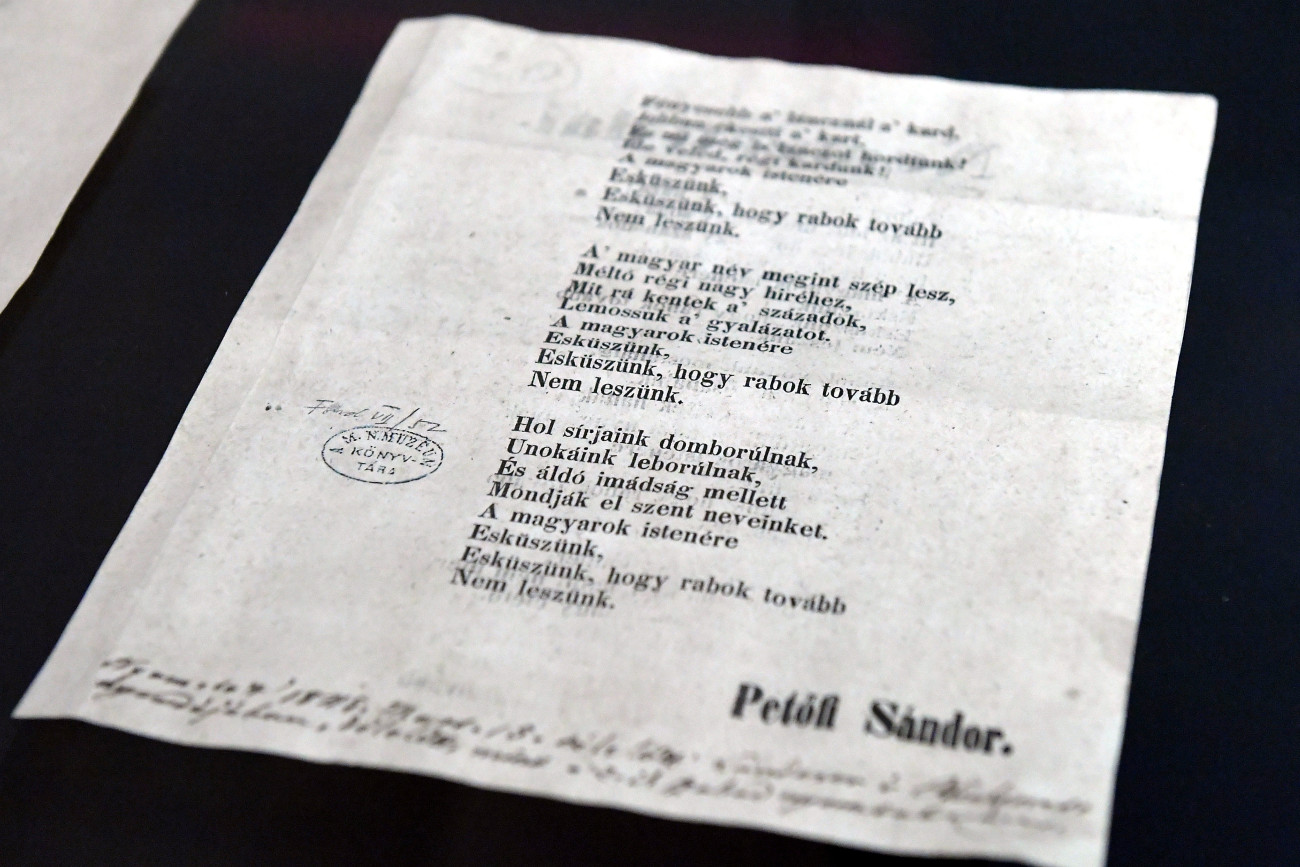 Fényesebb a' láncznál a' kard,
a' kart,
És mi még is lánczot hordtunk!
Ide veled, régi kardunk!
A magyarok istenére
Esküszünk,
Esküszünk, hogy rabok tovább
Nem leszünk.
A' magyar név megint szép lesz,
Méltó régi nagy hiréhez,
Mit rá kentek a' századok,
Lemossuk a' gyalázatot.
A magyarok istenére
Esküszünk,
Esküszünk, hogy rabok tovább
Nem leszünk.
Hol sírjaink domborúlnak,
Unokáink leborúlnak,
És áldó imádság mellett
Mondják el szent neveinket.
A magyarok istenére
Esküszünk,
Esküszünk, hogy rabok tovább
Nem leszünk.
VII/52
A M. N. MUZEUM
KÖNYV-
TÁRA
Petőfi Sándor.